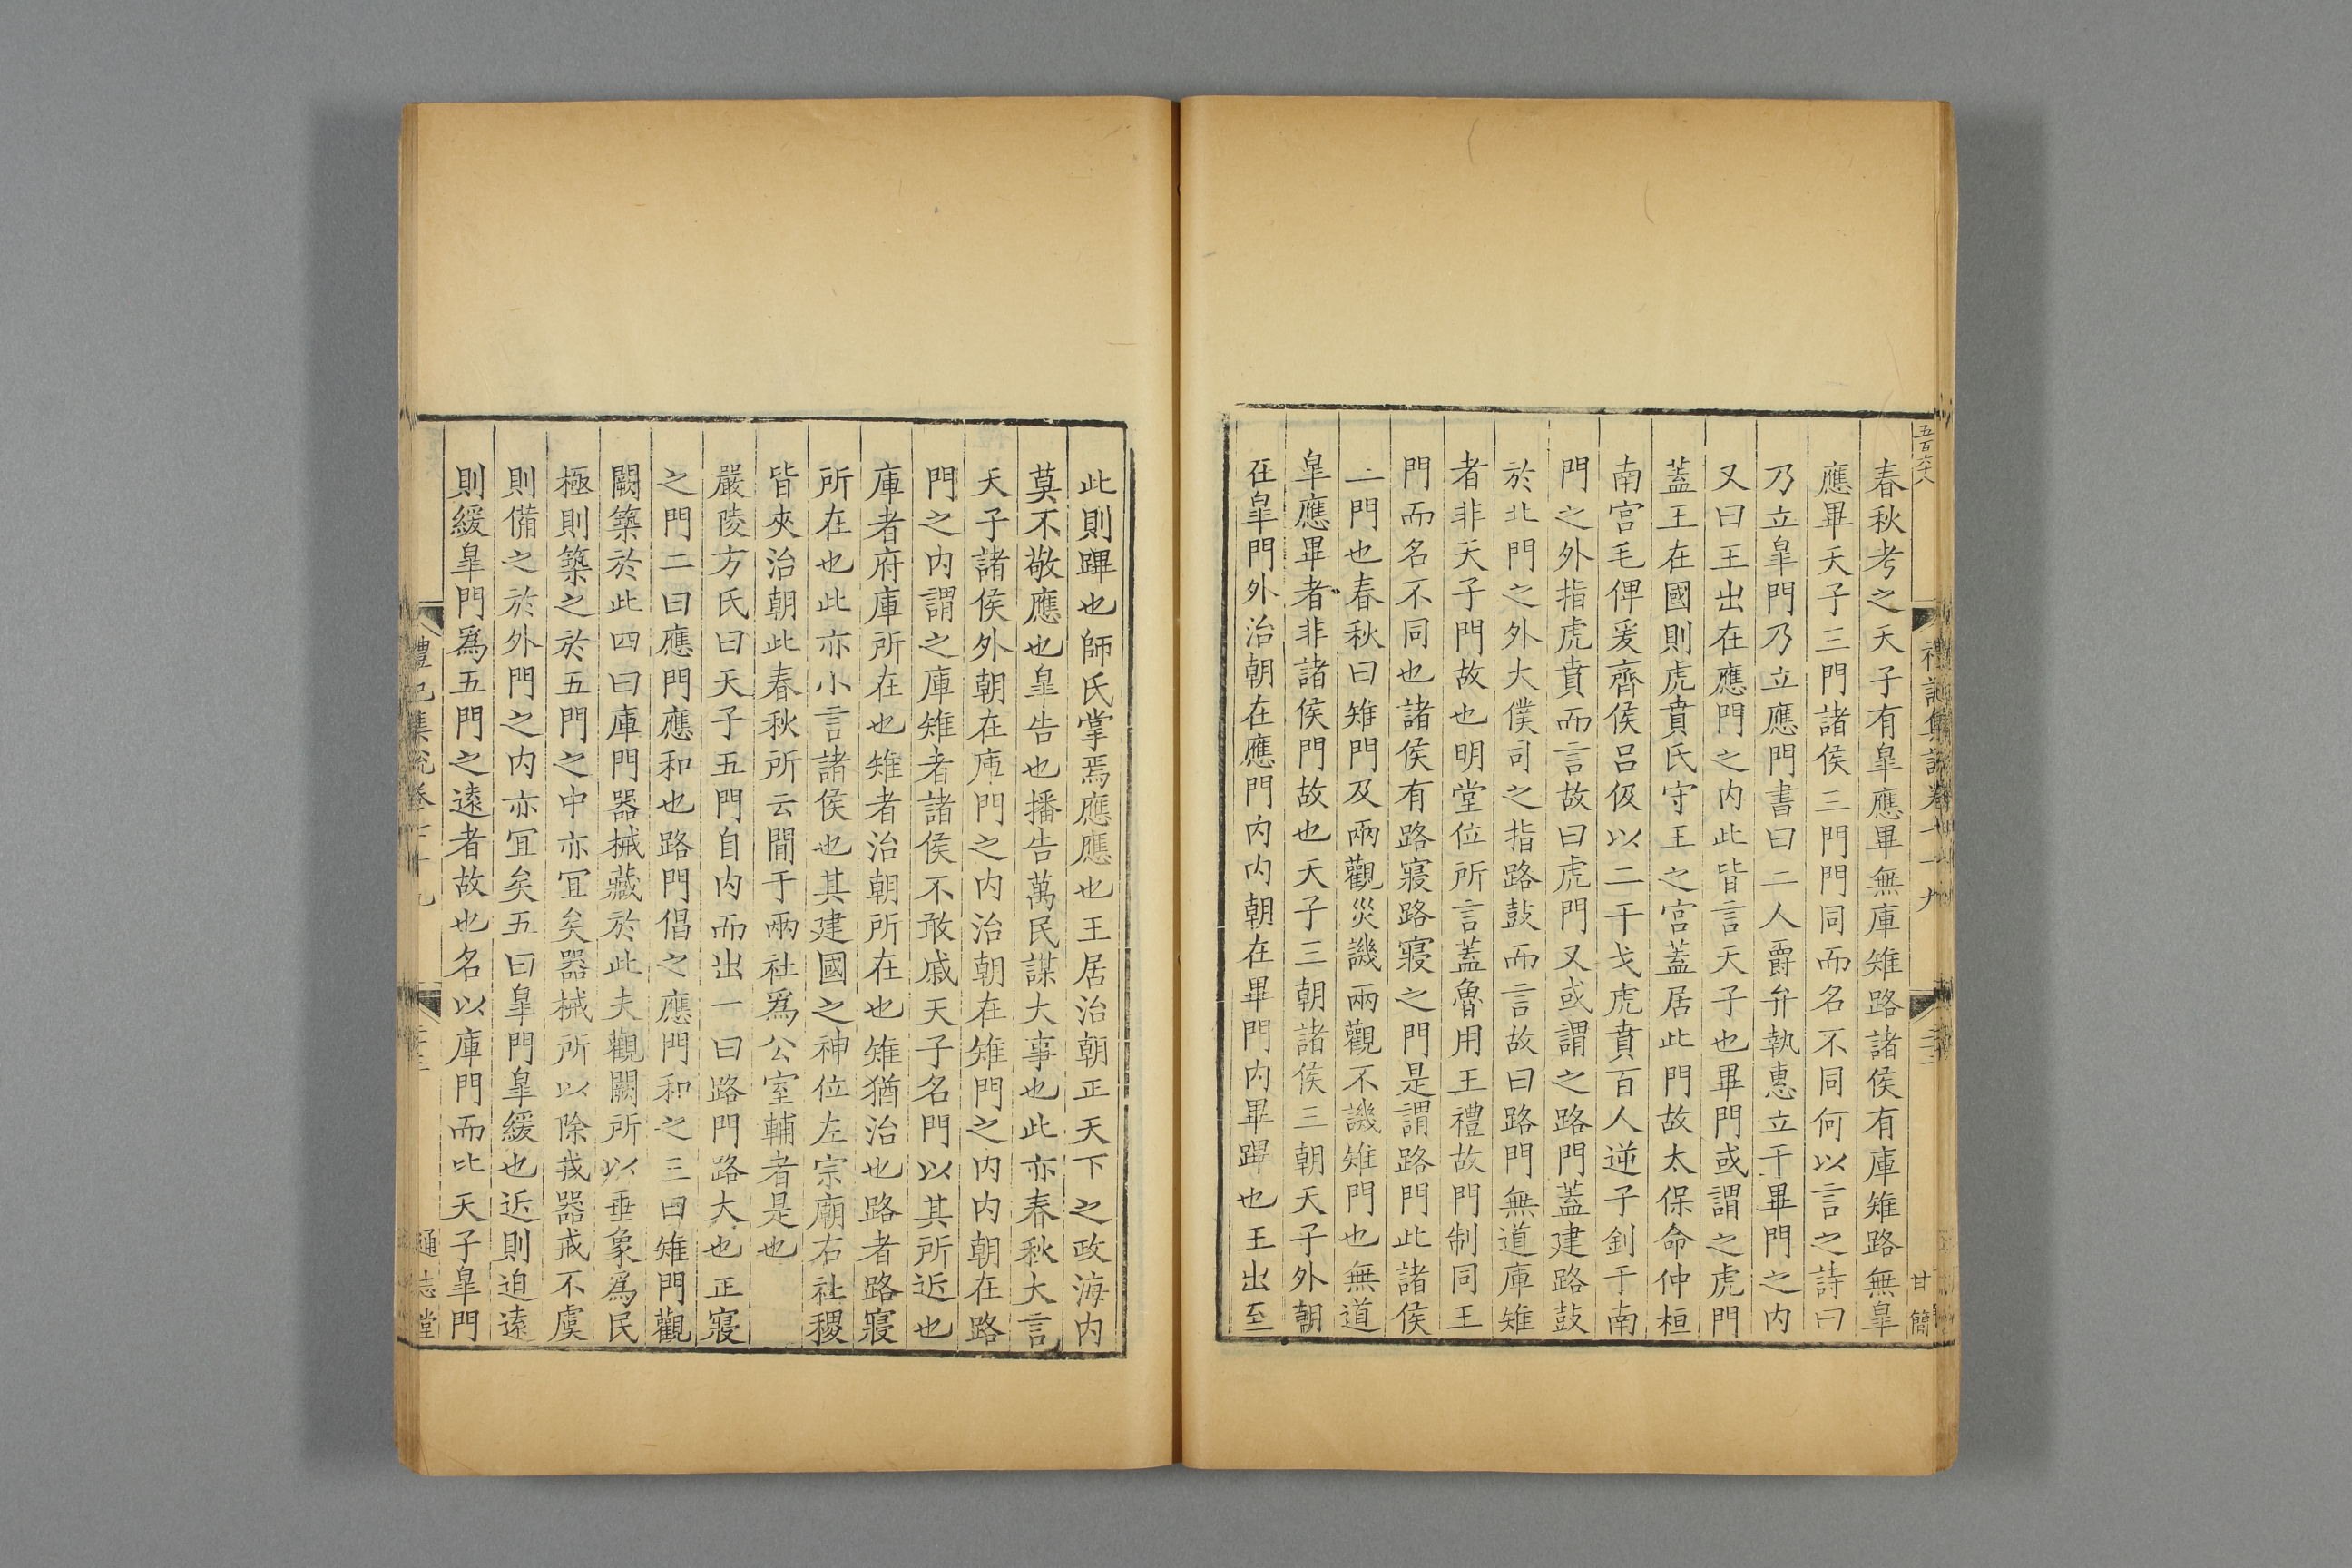 五百六十八
禮記集說卷七十九
甘簡
春秋考之天子有皐應畢無庫雉路諸侯有庫雉路無皐
應畢天子三門諸侯三門門同而名不同何以言之詩曰
乃立皐門乃立應門書曰二人爵弁執惠立于畢門之内
又曰王出在應門之内此皆言天子也畢門或謂之虎門
蓋王在國則虎賁氏守王之宮蓋居此門故太保命仲桓
南宮毛俾爰齊侯呂伋以二干戈虎賁百人逆子釗于南
門之外指虎賁而言故曰虎門又或謂之路門蓋建路鼓
於北門之外大僕司之指路鼓而言故曰路門無道庫雉
者非天子門故也明堂位所言蓋魯用王禮故門制同王
門而名不同也諸侯有路寢路寢之門是謂路門此諸侯
一門也春秋曰雉門及兩觀災譏兩觀不譏雉門也無道
皐應畢者非諸侯門故也天子三朝諸侯三朝天子外朝
在皐門外治朝在應門内内朝在畢門内畢蹕也王出至
此則蹕也師氏掌焉應應也王居治朝正天下之政海内
莫不敬應也皐告也播告萬民謀大事也此亦春秋大言
天子諸侯外朝在庫門之内治朝在雉門之内内朝在路
門之内謂之庫雉者諸侯不敢戚天子名門以其所近也
庫者府庫所在也雉者治朝所在也雉猶治也路者路寢
所在也此亦小言諸侯也其建國之神位左宗廟右社稷
皆夾治朝此春秋所云閒于兩社爲公室輔者是也
嚴陵方氏曰天子五門自内而出一曰路門路大也正寢
之門二曰應門應和也路門倡之應門和之三曰雉門觀
闕築於此四曰庫門器械藏於此夫觀闕所以垂象爲民
極則築之於五門之中亦宜矣器械所以除戎器戒不虞
則備之於外門之内亦宜矣五曰皐門皐緩也近則迫遠
則緩皐門爲五門之遠者故也名以庫門而比天子皐門
禮記集說卷七十九
通志堂